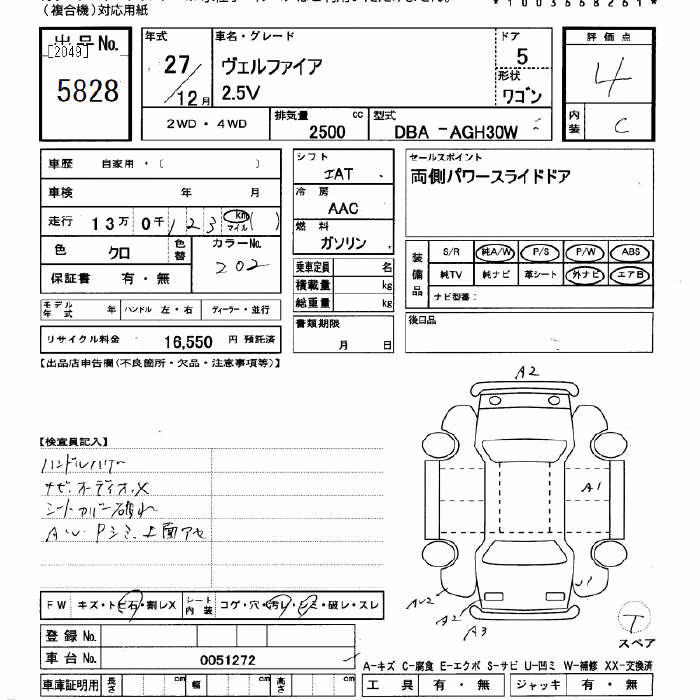 （複合機）対応用紙
*1003668261*
出品No.
[2049]
5828
年式
27/12月
車名・グレード
ヴェルファイア
2.5V
ドア
5
形状
ワゴン
評価点
4
内装
C
2WD・4WD
排気量
2500 cc
型式
DBA -AGH30W
車歴 自家用・（ ）
車検 年 月
走行 13万 0千 123 km マイル ( )
色 クロ
色替
カラーNo.
202
保証書 有・無
モデル年式 年
ハンドル 左・右
ディーラー・並行
リサイクル料金 16,550 円 預託済
シフト
IAT
冷房
AAC
燃料
ガソリン
乗車定員 名
積載量 kg
総重量 kg
書類期限
月 日
セールスポイント
両側パワースライドドア
装備品
S/R 純A/W P/S P/W ABS
純TV 純ナビ 革シート 外ナビ エアB
ナビ型番：
後日品
【出品店申告欄(不良箇所・欠品・注意事項等)】
【検査員記入】
ナビ.オーディオ.X
シートカバー破れ
FW キズ・トビ石・割レX
シート内装 コゲ・穴・汚レ・シミ・破レ・スレ
登録No.
車台No. 0051272
車庫証明用 長さ cm 幅 cm 高さ cm
A2
A1
U1
AU2
A2
A3
T
スペア
A-キズ C-腐食 E-エクボ S-サビ U-凹ミ W-補修 XX-交換済
工具 有・無 ジャッキ 有・無